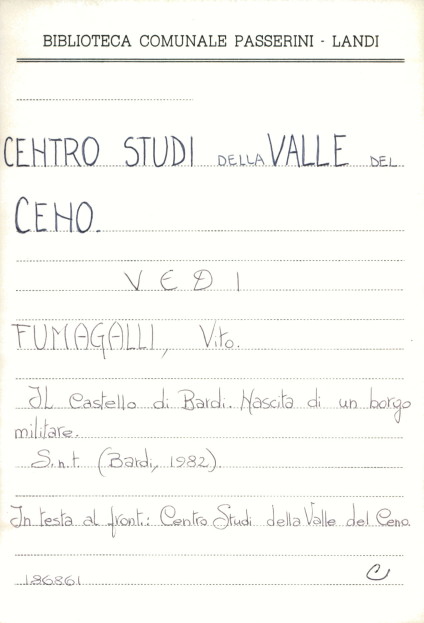 BIBLIOTECA COMUNALE PASSERINI - LANDI
CENTRO STUDI DELLA VALLE DEL
CENO.
VEDI
FUMAGALLI, Vito.
Il Castello di Bardi. Nascita di un borgo
militare.
S.n.t. (Bardi, 1982).
In testa al front.: Centro Studi della Valle del Ceno.
186861